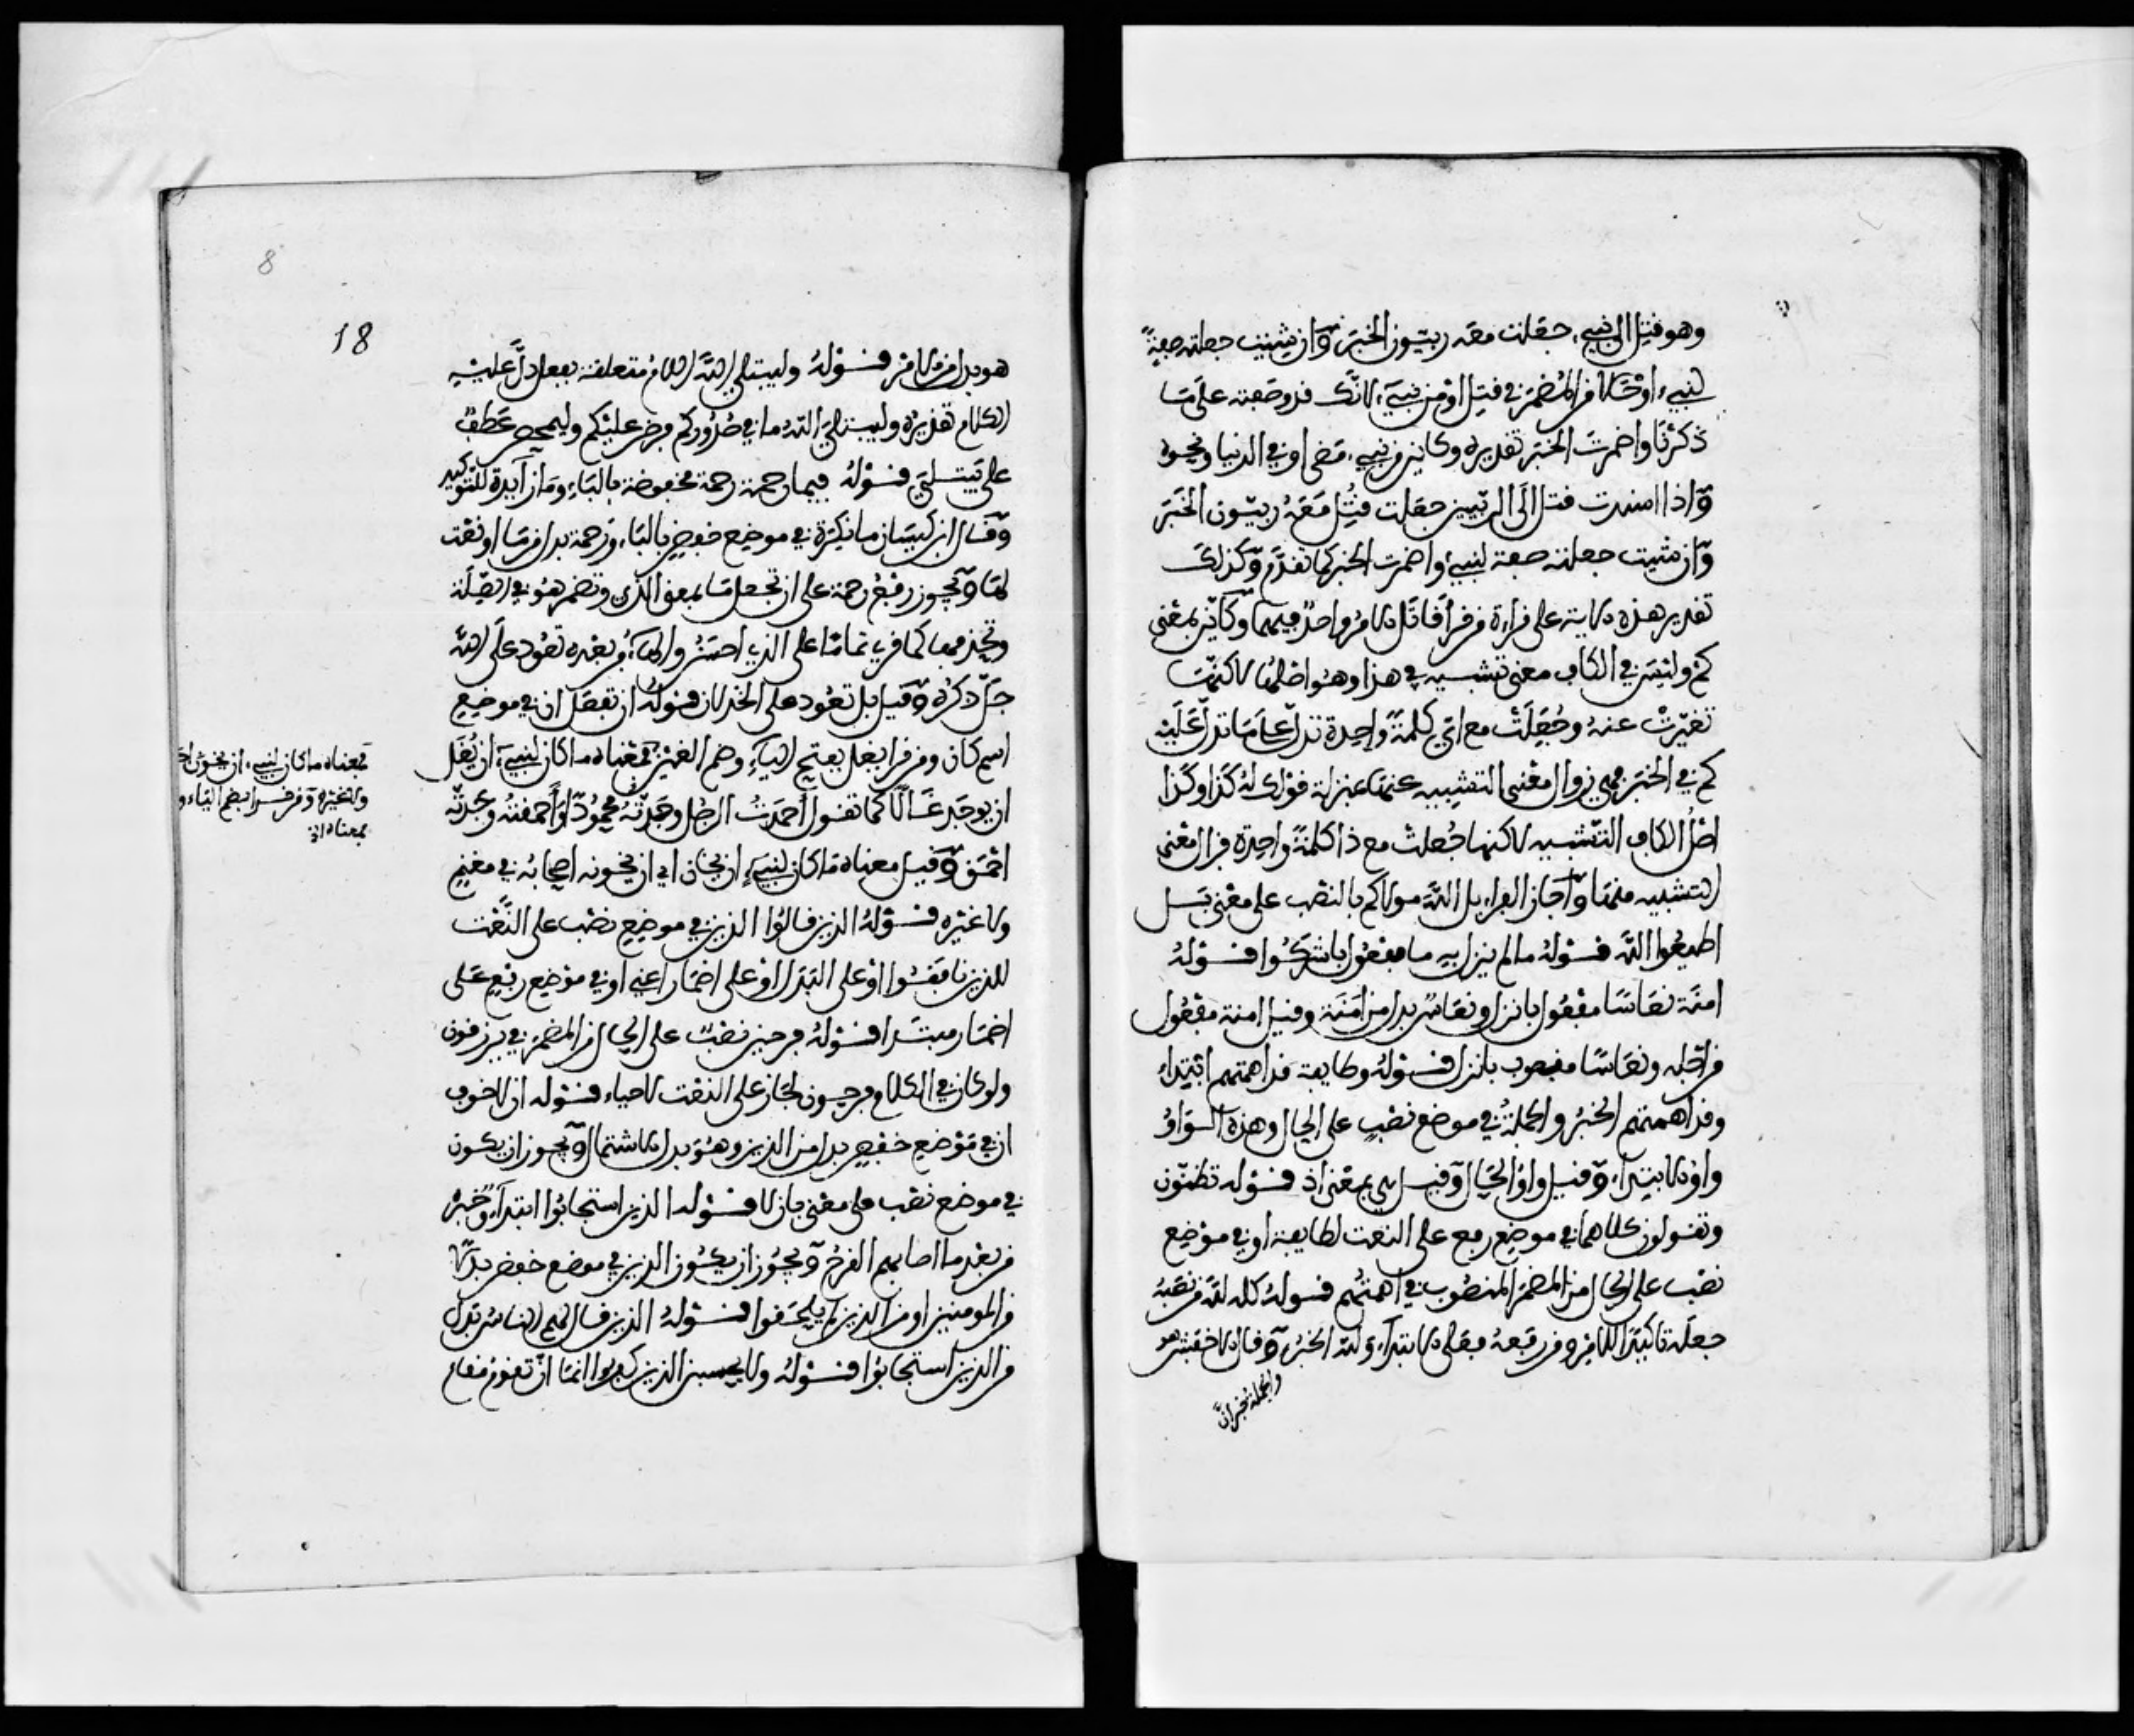 وهو قتل الى نبي، جعلت معه ربيون الخبر وان شيت جعلته صفة
لنبي، او حالا من المضمر في قتل او من نبي، لانك قد وصفته على ما
ذكرنا واضمرت الخبر تقديره وكاين من نبي، مضى او في الدنيا ونحوه
واذا اسندت قتل الى الربيين جعلت قتل معه ربيون الخبر
وان شيت جعلته صفة لنبي، واضمرت الخبر كما تقدم وكذلك
تقدير هذه الاية على قراءة من قرا قاتل الامر واحد فيهما وكاين بمعنى
كم وليس في الكاف معنى تشبيه في هذا وهو اصلها لاكنها
تغيرت عنه وجعلت مع اي كلمة واحدة تدل على ما تدل عليه
كم في الخبر فهي زوال معنى التشبيه عنها بمنزلة قولك له كذا وكذا
اصل الكاف التشبيه لاكنها جعلت مع ذا كلمة واحدة فزال معنى
التشبيه منها واجاز الفراء بل الله مولاكم بالنصب على معنى بل
اطيعوا الله قوله ما لم ينزل به ما مفعول باشركوا قوله
امنة نعاسا مفعول بانزل ونعاس بدل من امنة وقيل امنة مفعول
من اجله ونعاسا منصوب بانزل قوله وطايفة قد اهمتهم ابتداء
وقد اهمتهم الخبر والجملة في موضع نصب على الحال وهذه الواو
واو الابتداء، وقيل واو الحال وقيل هي بمعنى اذ قوله تظنون
وتقولون كلاهما في موضع رفع على النعت لطايفة او في موضع
نصب على الحال من المضمر المنصوب في اهمتهم قوله كله لله من نصبه
جعله تاكيدا للامر ومن رفعه فعلى الابتداء، ولله الخبر، وقال الاخفش هو
والجملة خبر ان
8
18
هو بدل من الامر قوله وليبتلي الله اللام متعلقة بفعل دل عليه
الكلام تقديره وليبتلي الله ما في صدوركم فرض عليكم وليمحص عطف
على يبتلي قوله فبما رحمة رحمة مخفوضة بالباء، وما زايدة للتوكيد
وقال ابن كيسان ما نكرة في موضع خفض بالباء، ورحمة بدل من ما او نعت
لها ويجوز رفع رحمة على ان تجعل ما بمعنى الذي وتضمر هو في الصلة
وتحذفها كما قري تماما على الذي احسن والهاء في بعده تعود على الله
جل ذكره وقيل بل تعود على الخذلان قوله ان يغل ان في موضع
اسم كان ومن قرا يغل بفتح الياء، وضم الغين فمعناه ما كان لنبي، ان يغل
ان يوجد غالا كما تقول احمدت الرجل وجدته محمودا واحمقته وجدته
احمق وقيل معناه ما كان لنبي، ان يخان اي ان يخونه اصحابه في مغنم
ولا غيره قوله الذين قالوا الذين في موضع نصب على النعت
للذين نافقوا او على البدل او على اضمار اعني او في موضع رفع على
اضمار مبتدا قوله فرحين نصب على الحال من المضمر في يرزقون
ولو كان في الكلام فرحون لجاز على النعت لاحياء قوله ان لا خوف
ان في موضع خفض بدل من الذين وهو بدل الاشتمال ويجوز ان يكون
في موضع نصب على معنى بان لا قوله الذين استجابوا ابتداء، وخبره
من بعد ما اصابهم القرح ويجوز ان يكون الذين في موضع خفض بدلا
من المومنين او من الذين لم يلحقوا قوله الذين قال لهم الناس بدل
من الذين استجابوا قوله ولا يحسبن الذين كفروا انما ان تقوم مقام
فمعناه ما كان لنبي، ان يخون
ولا غيره ومن قرا بضم الياء و
فمعناه ان